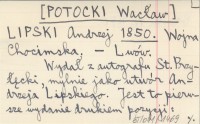 [POTOCKI Wacław]
LIPSKI Andrzej 1850. Wojna
Chocimska. – Lwów.
Wydał z autografu St. Przy-
łęcki, mylnie jako utwór An-
drzeja Lipskiego. Jest to pierw-
sze wydanie drukiem pozycji: